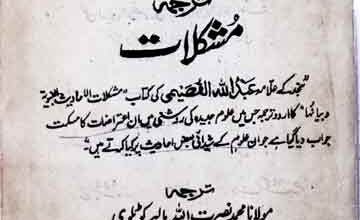 ترجمہ
مشکلات
نجد کے علامہ عبداللہ القصیمی کی کتاب "مشکلات الاحادیث النبویہ
و بیانہا" کا اردو ترجمہ جس میں علوم جدیدہ کی روشنی میں ان اعتراضات کا مسکت
جواب دیا گیا ہے جو ان علوم کے شیدائی بعض احادیث پر کیا کرتے ہیں"
ترجمہ
مولانا محمد نصرت اللہ مالیر کوٹلوی